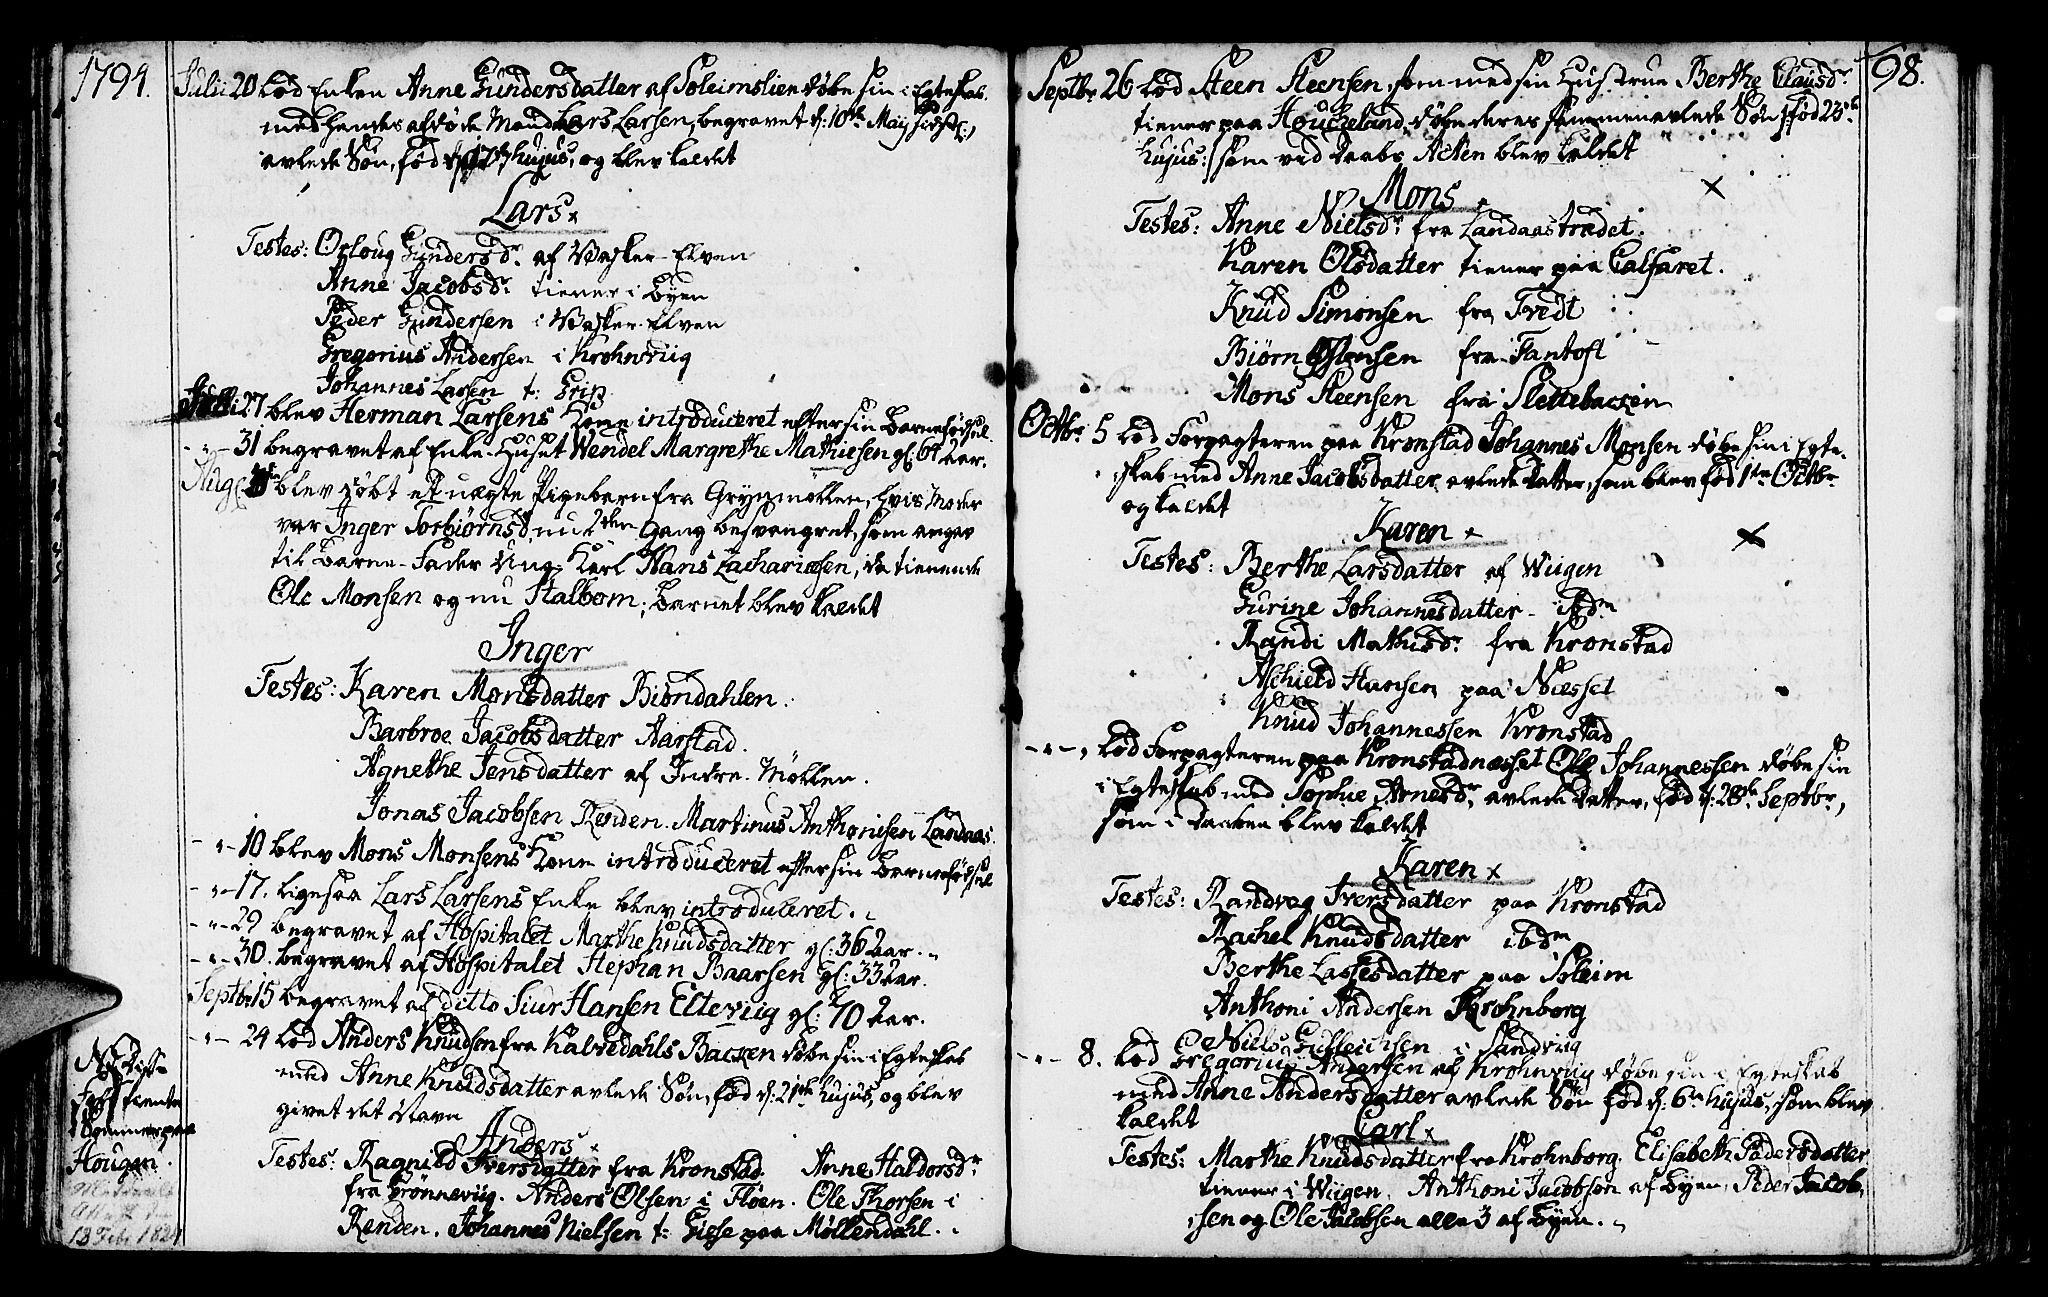 1794.
Julii 20 Lod Enken Anne Gundersdatter af Soleimslien døbe sin i Egteskab
med hendes afdøde Mand Lars Larsen, begravet d: 10de May sidstl:,
avlede Søn, fød d. 17de hujus, og blev kaldet
Lars
Testes: Orloug Gundersdr. af Vasker-Elven
Anne Jacobsdr. tiener i Byen
Peder Gundersen i Vasker-Elven
Gregorius Andersen i Krohnviig
Johannes Larsen t: Grip
Julii 27 blev Herman Larsens Kone introduceret efter sin Barnefødsel
- " - 31 begravet af Enke-Huset Wendel Margrethe Mathiesen gl: 67 Aar.
Aug: blev døbt et uægte Pigebarn fra Grynmøllen, hvis Moder
var Inger Torbiørnsd. nu 2den Gang besvangret, som angav
til Barne-Fader Ung Karl Hans Zachariæsen, da tienende
Ole Monsen og nu Stalbom; Barnet blev kaldet
Inger
Testes: Karen Monsdatter Biøndahlen.
Barbroe Jacobsdatter Aarstad.
Agnethe Jensdatter af Indre-Møllen.
Jonas Jacobsen Renden. Martinus Anthonisen Landaas.
- " - 10 blev Mons Monsens Kone introduceret efter sin Barnefødsel
- " - 17. ligesaa Lars Larsens Enke blev introduceret.
- " - 29 begravet af Hospitalet Marthe Knudsdatter gl: 36 Aar.
- " - 30. begravet af Hospitalet Stephan Baarsen gl: 33 Aar.
Septbr 15 begravet af ditto Siur Hansen Elteviig gl: 70 Aar.
- " - 24 Lod Anders Knudsen fra Kalvedahls Backen døbe sin i Egteskab
med Anne Knudsdatter avlede Søn, fød d: 21de hujus, og blev
givet det Navn
Anders
Testes: Ragnild Iversdatter fra Kronstad. Anne Haldorsdr.
fra Grønneviig. Anders Olsen i Fløen. Ole Thorsen i
Renden. Johannes Nielsen t: Giese paa Møllendahl.
Hougen
13 Febr 1824
98.
Septbr 26 Lod Steen Steensen, som med sin Hustrue Berthe Clausdr.
tiener paa Houckeland, døbe deres sammenavlede Søn fød 23de
hujus: som ved Daabs Acten blev kaldet
Mons
Testes: Anne Nielsdr. fra Landaastrædet.
Karen Olsdatter tiener paa Calfaret.
Knud Simonsen fra Tvedt
Biørn Olsensen fra Fantoft
Mons Steensen fra Slettebacken
Octbr. 5 Lod Forpagteren paa Kronstad Johannes Monsen døbe sin i Egte-
skab med Anne Jacobsdatter avlede Datter, som blev fød 1ste Octbr
og kaldet
Karen
Testes: Berthe Larsdatter af Wiigen
Gurine Johannesdatter ibdm
Randi Mathisdr. fra Kronstad
Aschield Hansen paa Næsset
Knud Johannessen Kronstad
- " - , Lod Forpagteren paa Kronstadnæsset Ole Johannessen døbe sin
i Egteskab med Sophie Arnesdr. avlede Datter, fød d: 28de Septbr,
som i Daaben blev kaldet
Karen
Testes: Randvog Iversdatter paa Kronstad
Rachel Knudsdatter ibdm
Berthe Lassesdatter paa Soleim
Anthoni Andersen Krohnborg
Niels Gulleichsen i Sandviig
- " - 8. Lod Gregorius Andersen af Krohnviig døbe sin i Egteskab
med Anne Andersdatter avlede Søn fød d: 6te hujus, som blev
kaldet
Carl
Testes: Marthe Knudsdatter fra Krohnborg. Elisabeth Pedersdatter
tiener i Wiigen. Anthoni Jacobsen af Byen, Peder Jacob-
sen og Ole Jacobsen alle 3 af Byen.